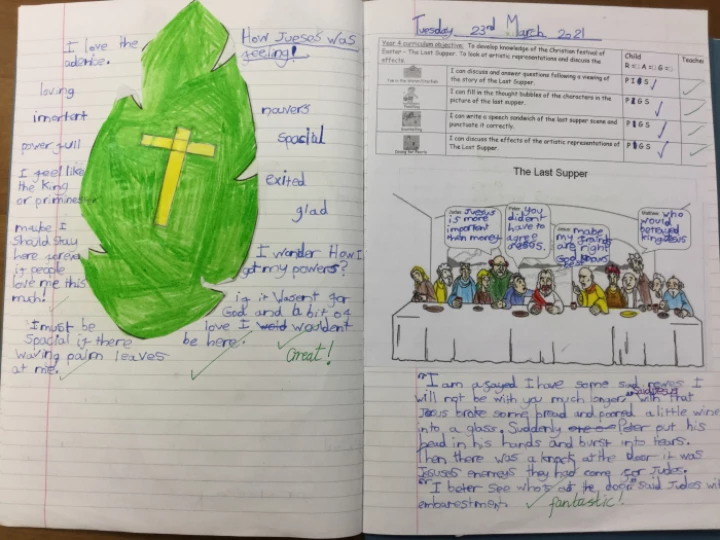 How Jueses was
feeling!
I love the
adence.
loving
imortent
powerfull
I feel like
the King
or priminester
maybe I
should stay
here forever
if people
love me this
much!
I must be
Spacial if there
waving palm leaves
at me.
nauvers
spacial
exited
glad
I wonder How I
got my powers?
if it wasent for
God and a bit of
love I wouldent
be here.
Great!
Tuesday 23rd March 2021
Year 4 curriculum objective: To develop knowledge of the Christian festival of
Easter – The Last Supper. To look at artistic representations and discuss the
effects.
Child
R = A = G =
Teacher
I can discuss and answer questions following a viewing of
the story of the Last Supper.
P I G S
I can fill in the thought bubbles of the characters in the
picture of the last supper.
P I G S
I can write a speech sandwich of the last supper scene and
punctuate it correctly.
P I G S
I can discuss the effects of the artistic representations of
The Last Supper.
P I G S
The Last Supper
Judas: Juesus
is more
important
than money
Peter: you
dident
have to
agree
Jesus: make
my
are right
Matthew: who
would
betrayed
king Jesus
"I am afrayed I have some sad newes I
will not be with you much longer" said Jesus with that
Jesus broke some bread and poored a little wine
into a glass. Suddenly Peter put his
head in his hands and burst into tears.
Then there was a knock at the door it was
Jesuses enemeys they had come for Judes.
"I beter see who's at the door" said Judes with
embaresment.
fantastic!